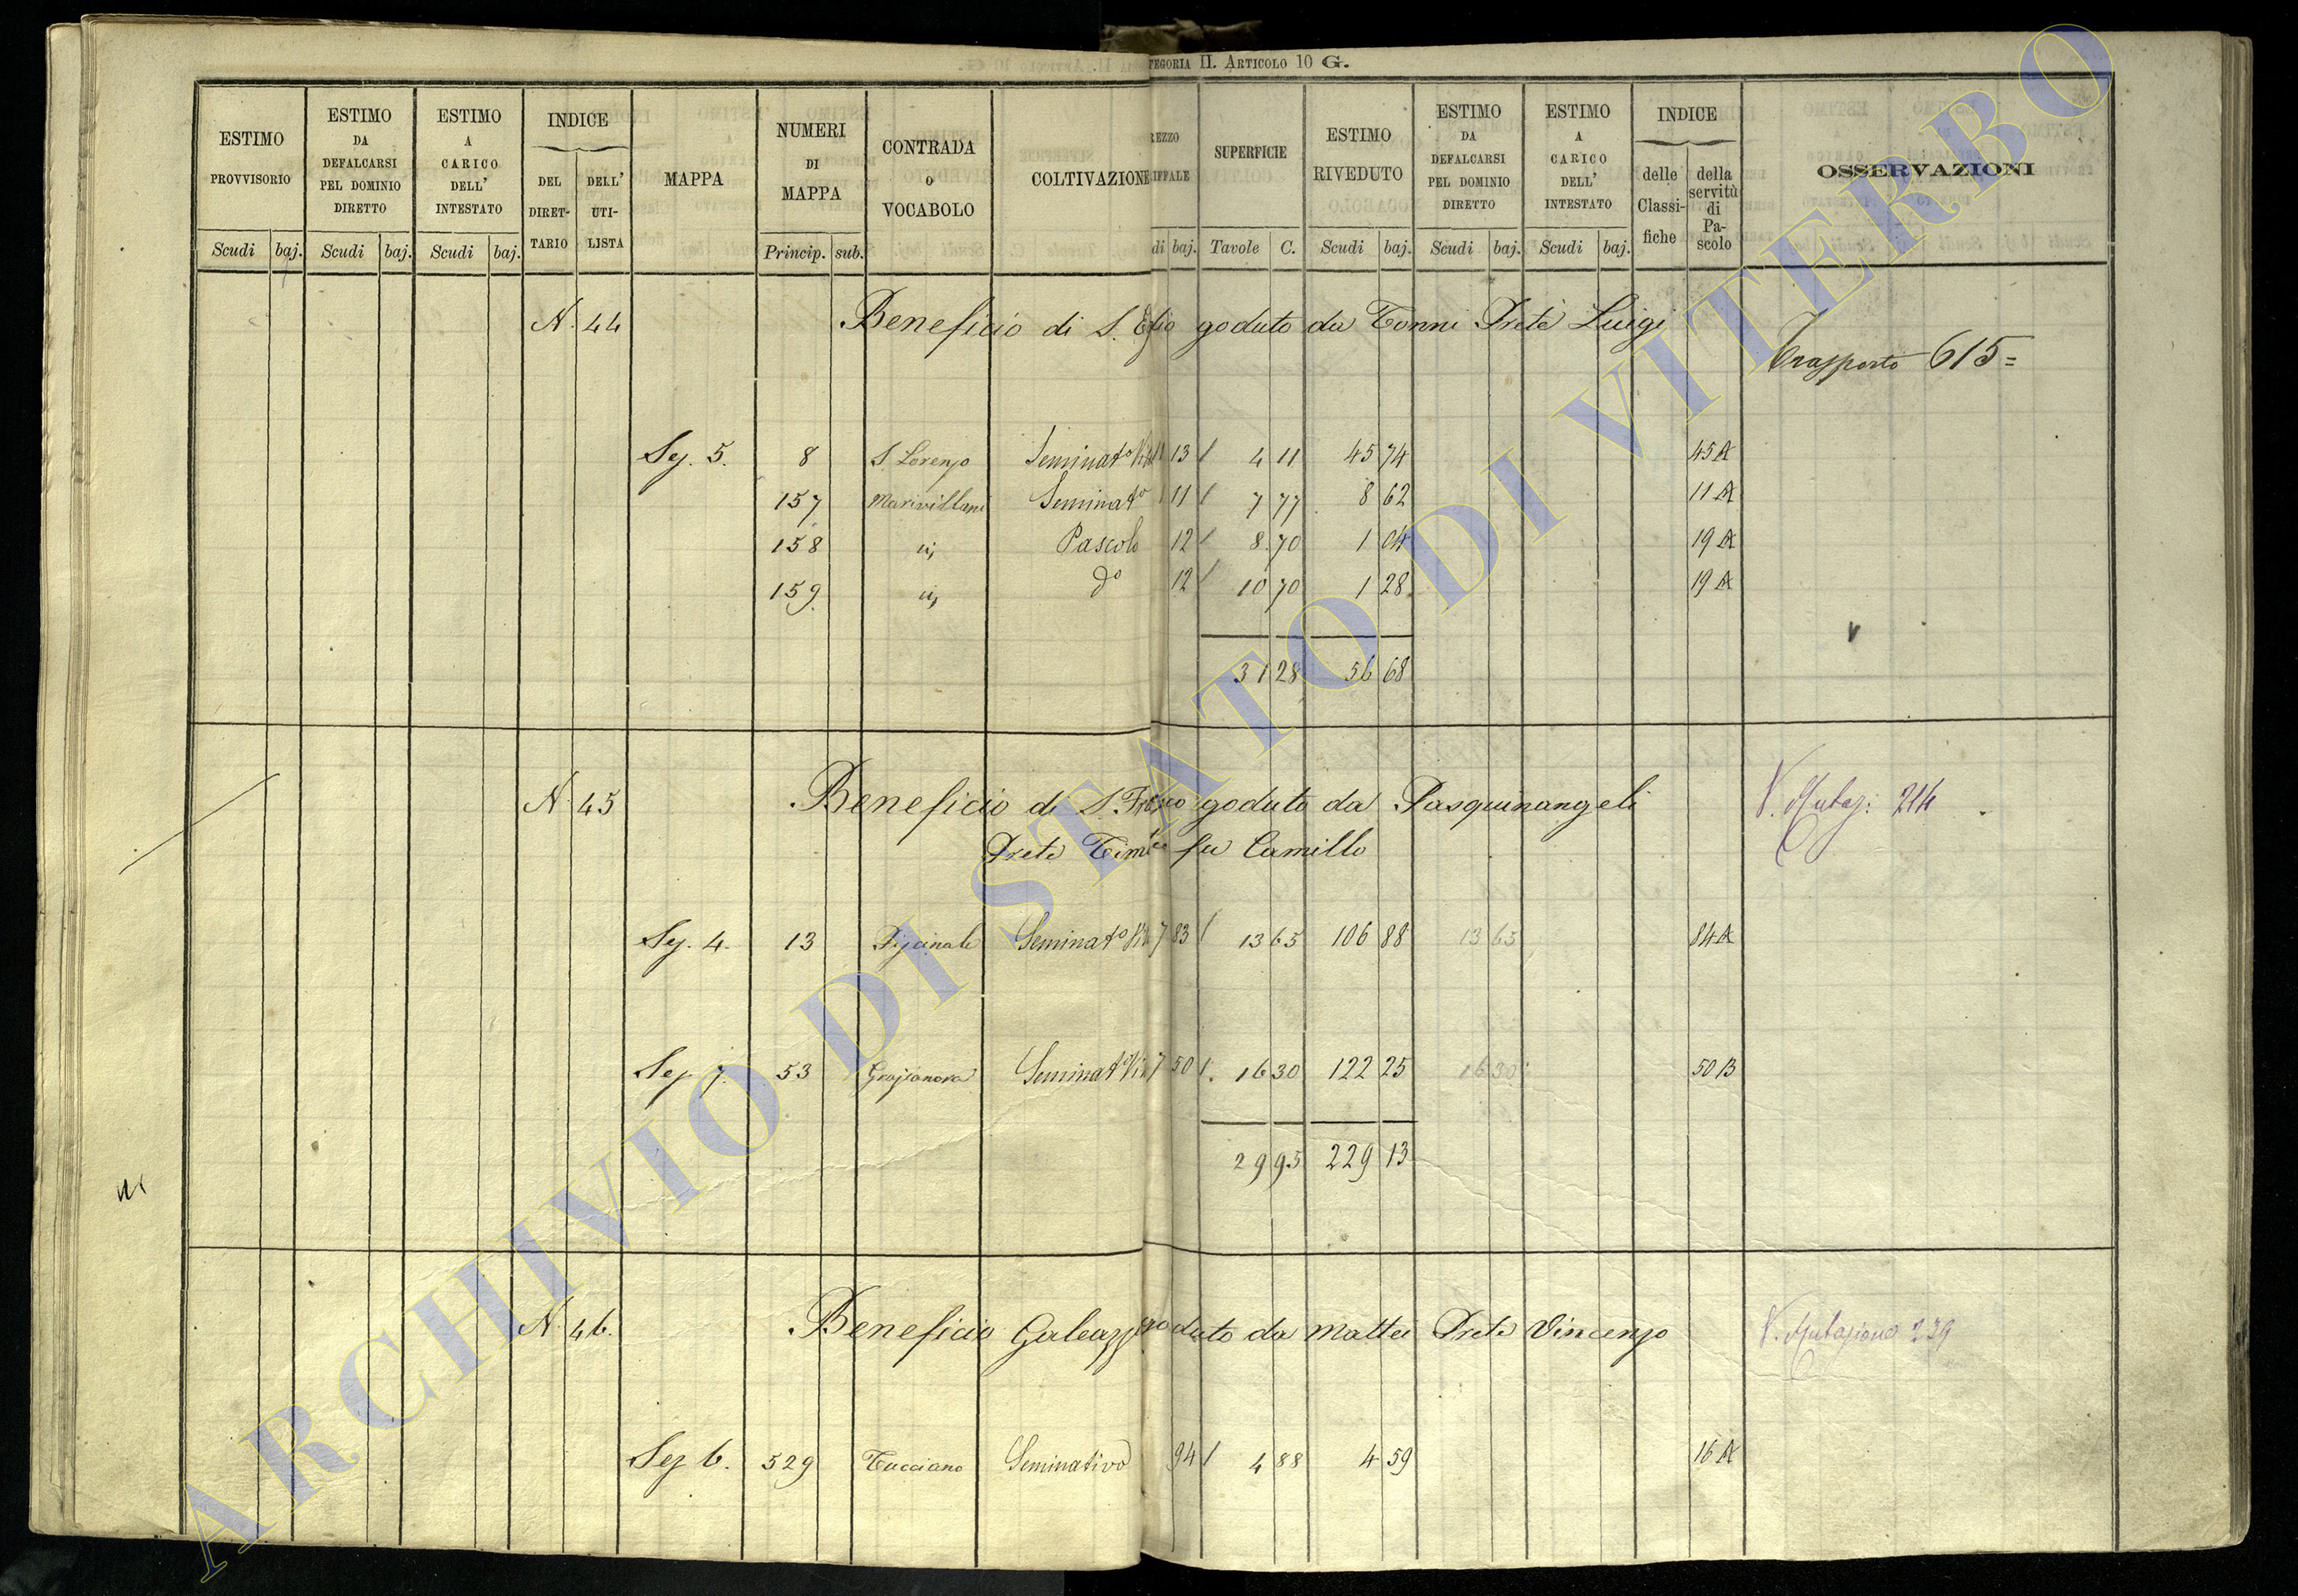 TEGORIA II. ARTICOLO 10 G.
ESTIMO PROVVISORIO
ESTIMO DA DEFALCARSI PEL DOMINIO DIRETTO
ESTIMO A CARICO DELL' INTESTATO
INDICE
DEL DIRET- TARIO
DELL' UTI- LISTA
MAPPA
NUMERI DI MAPPA
CONTRADA O VOCABOLO
COLTIVAZIONE
REZZO RIFFALE
SUPERFICIE
ESTIMO RIVEDUTO
ESTIMO DA DEFALCARSI PEL DOMINIO DIRETTO
ESTIMO A CARICO DELL' INTESTATO
INDICE
delle Classi- fiche
della servitù di Pa- scolo
OSSERVAZIONI
Scudi baj. Scudi baj. Scudi baj. Princip. sub. di baj. Tavole C. Scudi baj. Scudi baj. Scudi baj.
N. 44 Beneficio di S. goduto da Tonni Prete Luigi
Trasporto 615=
Sez. 5. 8 S. Lorenzo Seminat.o 13 4 11 45 74 45 A
157 Marivillani Seminat.o 11 7 77 8 62 11 A
158 Pascolo 12 8 70 1 04 19 A
159 d.o 12 10 70 1 28 19 A
31 28 56 68
N. 45 Beneficio di S. goduto da Pasquinangeli V. Mutaz: 214
Prete fu Camillo
Sez. 4. 13 Piscinale Seminat.o 7 83 13 65 106 88 13 65 84 A
Sez 7. 53 Seminat.o 7 50 16 30 122 25 16 30 50 B
29 95 229 13
N. 46. Beneficio Galeazzi goduto da Mattei Prete Vincenzo V. Mutazione 239
Sez 6. 529 Tucciano Seminativo 94 4 88 4 59 16 A
ARCHIVIO DI STATO DI VITERBO